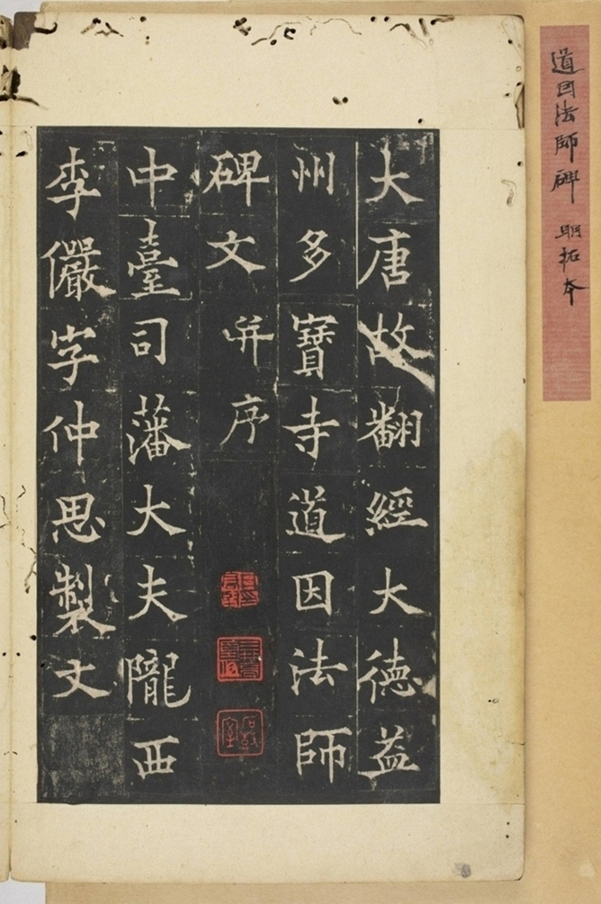 道因法師碑 明拓本
大唐故翻經大德益
州多寶寺道因法師
碑文并序
中臺司藩大夫隴西
李儼字仲思製文